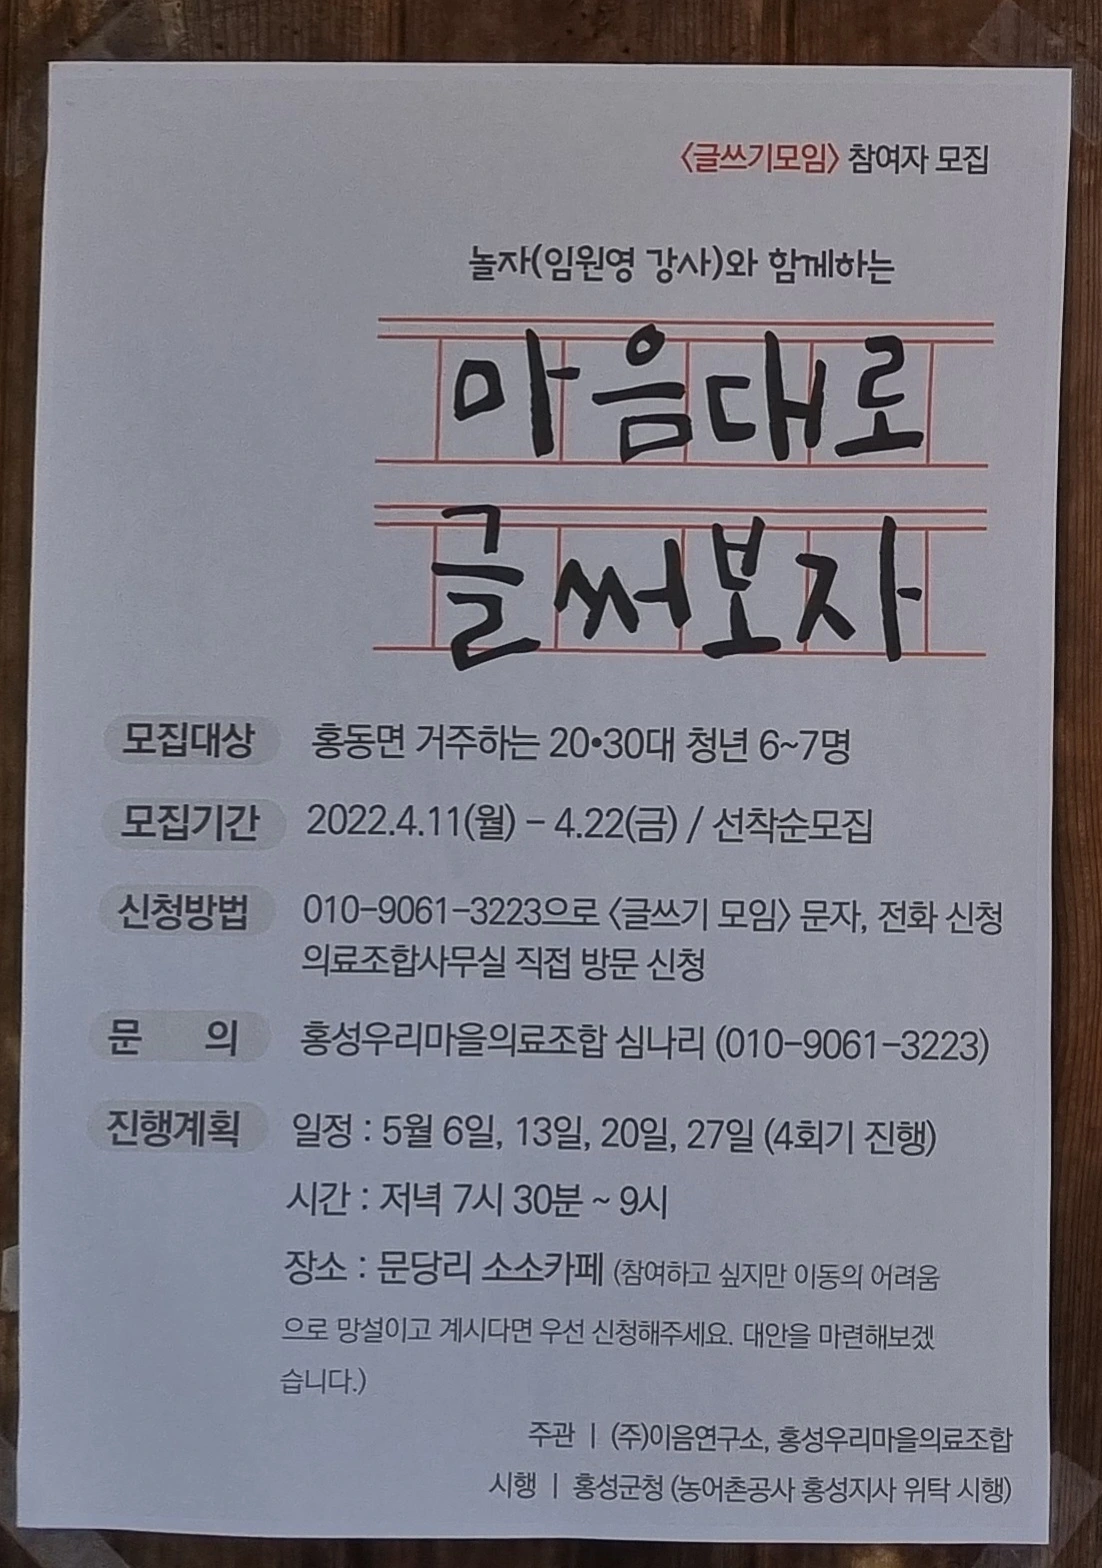 <글쓰기모임> 참여자 모집
놀자(임원영 강사)와 함께하는
마음대로
글써보자
모집대상 홍동면 거주하는 20•30대 청년 6~7명
모집기간 2022.4.11(월) - 4.22(금) / 선착순모집
신청방법 010-9061-3223으로 <글쓰기 모임> 문자, 전화 신청
의료조합사무실 직접 방문 신청
문 의 홍성우리마을의료조합 심나리 (010-9061-3223)
진행계획 일정 : 5월 6일, 13일, 20일, 27일 (4회기 진행)
시간 : 저녁 7시 30분 ~ 9시
장소 : 문당리 소소카페 (참여하고 싶지만 이동의 어려움
으로 망설이고 계시다면 우선 신청해주세요. 대안을 마련해보겠
습니다.)
주관 | (주)이음연구소, 홍성우리마을의료조합
시행 | 홍성군청 (농어촌공사 홍성지사 위탁 시행)